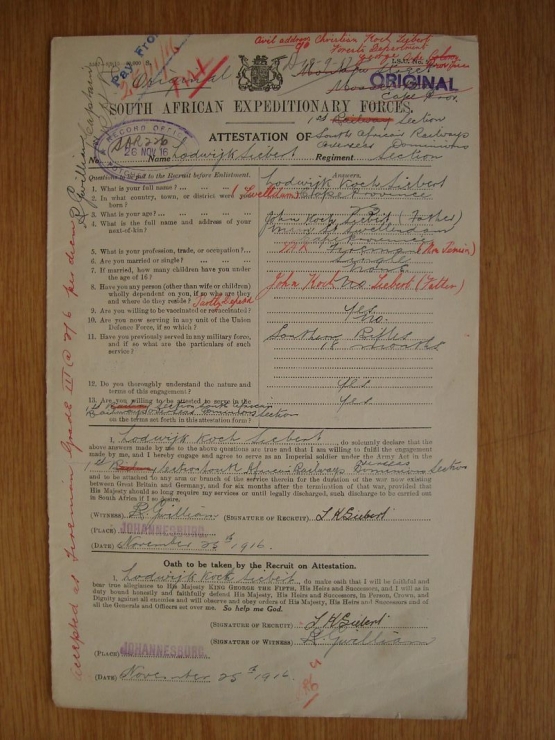 Civil address Christian Koch Siebert
c/o Forests Department
George
ORIGINAL
Original
Cape Prov.
SOUTH AFRICAN EXPEDITIONARY FORCES.
1st Railway Section
ATTESTATION OF South African Railways
Overseas Dominions
No. Name Lodwijk Siebert Regiment Section
RECORD OFFICE
25 NOV 16
Questions to be put to the Recruit before Enlistment. Answers.
1. What is your full name? Lodwijk Koch Siebert
2. In what country, town, or district were you born? (Swellendam) Cape Province
3. What is your age?
4. What is the full name and address of your next-of-kin? John Koch Siebert (Father)
Swellendam
Cape Province
5. What is your profession, trade, or occupation? Fireman
6. Are you married or single? Single
7. If married, how many children have you under the age of 16? None
8. Have you any person (other than wife or children) wholly dependent on you, if so who are they and where do they reside? Partly Depend No.
John Koch Siebert (Father)
9. Are you willing to be vaccinated or revaccinated? Yes
10. Are you now serving in any unit of the Union Defence Force, if so which? No.
11. Have you previously served in any military force, and if so what are the particulars of such service? Southern Rifles
18 months
12. Do you thoroughly understand the nature and terms of this engagement? Yes
13. Are you willing to be attested to serve in the Yes
1st Railway Section South African
Railways Overseas Dominions Section
on the terms set forth in this attestation form?
I, Lodwijk Koch Siebert, do solemnly declare that the
above answers made by me to the above questions are true and that I am willing to fulfil the engagement
made by me, and I hereby engage and agree to serve as an Imperial soldier under the Army Act in the
1st Railway Section South African Railways Overseas Dominions Section
and to be attached to any arm or branch of the service therein for the duration of the war now existing
between Great Britain and Germany, and for six months after the termination of that war, provided that
His Majesty should so long require my services or until legally discharged, such discharge to be carried out
in South Africa if I so desire.
(WITNESS) R. Gwilliam (SIGNATURE OF RECRUIT) L K Siebert
(PLACE) JOHANNESBURG.
(DATE) November 25th 1916.
Oath to be taken by the Recruit on Attestation.
I, Lodwijk Koch Siebert, do make oath that I will be faithful and
bear true allegiance to His Majesty KING GEORGE THE FIFTH, His Heirs and Successors, and I will as in
duty bound honestly and faithfully defend His Majesty, His Heirs and Successors, in Person, Crown, and
Dignity against all enemies and will observe and obey orders of His Majesty, His Heirs and Successors and of
all the Generals and Officers set over me. So help me God.
(SIGNATURE OF RECRUIT) L K Siebert
(SIGNATURE OF WITNESS) R. Gwilliam
(PLACE) JOHANNESBURG.
(DATE) November 25th 1916.
Accepted as Fireman Grade III @ 2/6 per diem
R Gwilliam Captain